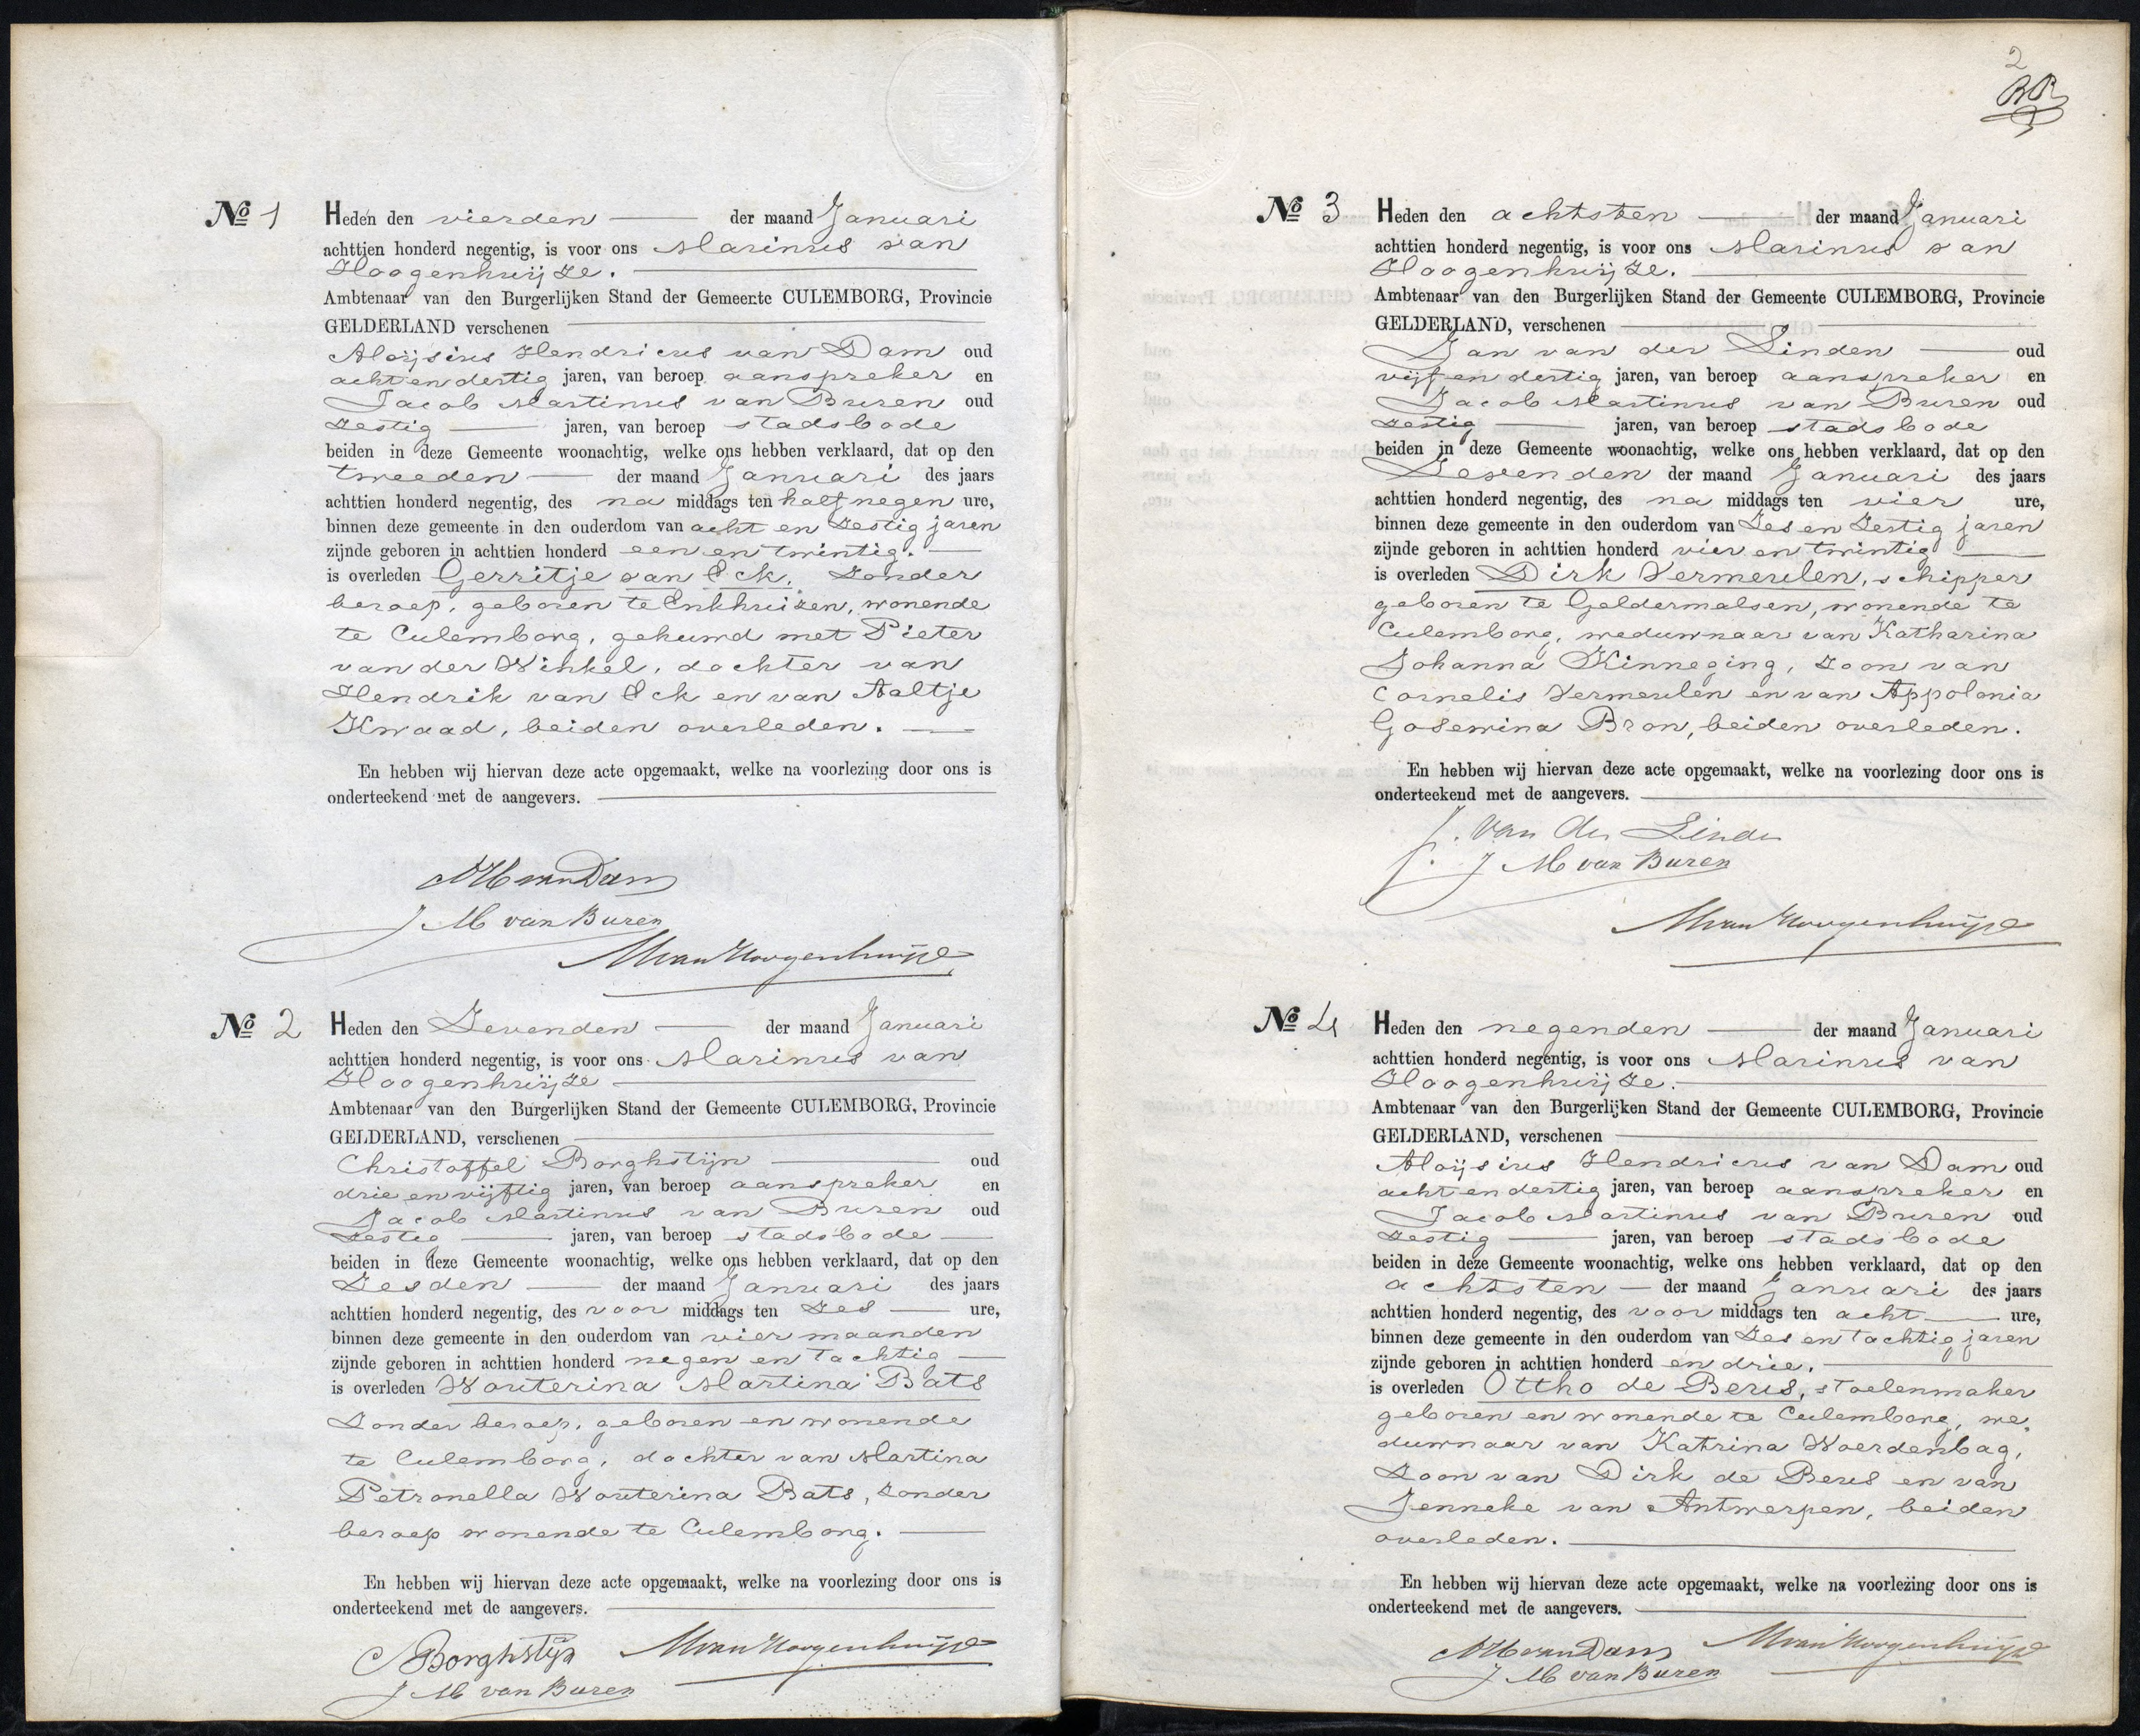 No 1 Heden den vierden der maand Januari
achttien honderd negentig, is voor ons Marinus van
Hoogenhuijze.
Ambtenaar van den Burgerlijken Stand der Gemeente CULEMBORG, Provincie
GELDERLAND verschenen
Aloijsius Hendricus van Dam oud
acht en dertig jaren, van beroep aanspreker en
Jacob Martinus van Buren oud
zestig jaren, van beroep stadsbode
beiden in deze Gemeente woonachtig, welke ons hebben verklaard, dat op den
tweeden der maand Januari des jaars
achttien honderd negentig, des na middags ten half negen ure,
binnen deze gemeente in den ouderdom van acht en zestig jaren
zijnde geboren in achttien honderd een en twintig.
is overleden Gerritje van Eck. zonder
beroep, geboren te Enkhuizen, wonende
te Culemborg, gehuwd met Pieter
van der Winkel, dochter van
Hendrik van Eck en van Aaltje
Kwaad, beiden overleden.
En hebben wij hiervan deze acte opgemaakt, welke na voorlezing door ons is
onderteekend met de aangevers.
AH van Dam
J M van Buren
M van Hoogenhuijze
No 2 Heden den Zevenden der maand Januari
achttien honderd negentig, is voor ons Marinus van
Hoogenhuijze
Ambtenaar van den Burgerlijken Stand der Gemeente CULEMBORG, Provincie
GELDERLAND, verschenen
Christoffel Borghstijn oud
drie en vijftig jaren, van beroep aanspreker en
Jacob Martinus van Buren oud
zestig jaren, van beroep stadsbode
beiden in deze Gemeente woonachtig, welke ons hebben verklaard, dat op den
Zesden der maand Januari des jaars
achttien honderd negentig, des voor middags ten zes ure,
binnen deze gemeente in den ouderdom van vier maanden
zijnde geboren in achttien honderd negen en tachtig
is overleden Wouterina Martina Bats
zonder beroep, geboren en wonende
te Culemborg, dochter van Martina
Petronella Wouterina Bats, zonder
beroep wonende te Culemborg.
En hebben wij hiervan deze acte opgemaakt, welke na voorlezing door ons is
onderteekend met de aangevers.
C Borghstijn M van Hoogenhuijze
J M van Buren
2
No 3 Heden den achtsten der maand Januari
achttien honderd negentig, is voor ons Marinus van
Hoogenhuijze.
Ambtenaar van den Burgerlijken Stand der Gemeente CULEMBORG, Provincie
GELDERLAND, verschenen
Jan van der Linden oud
vijf en dertig jaren, van beroep aanspreker en
Jacob Martinus van Buren oud
zestig jaren, van beroep stadsbode
beiden in deze Gemeente woonachtig, welke ons hebben verklaard, dat op den
Zevenden der maand Januari des jaars
achttien honderd negentig, des na middags ten vier ure,
binnen deze gemeente in den ouderdom van Zes en Zestig jaren
zijnde geboren in achttien honderd vier en twintig
is overleden Dirk Vermeulen, schipper
geboren te Geldermalsen, wonende te
Culemborg, weduwnaar van Katharina
Johanna Kinneging, zoon van
Cornelis Vermeulen en van Appolonia
Gosewina Bron, beiden overleden.
En hebben wij hiervan deze acte opgemaakt, welke na voorlezing door ons is
onderteekend met de aangevers.
J. van der Linde
J M van Buren
M van Hoogenhuijze
No 4 Heden den negenden der maand Januari
achttien honderd negentig, is voor ons Marinus van
Hoogenhuijze.
Ambtenaar van den Burgerlijken Stand der Gemeente CULEMBORG, Provincie
GELDERLAND, verschenen
Aloijsius Hendricus van Dam oud
acht en dertig jaren, van beroep aanspreker en
Jacob Martinus van Buren oud
zestig jaren, van beroep stadsbode
beiden in deze Gemeente woonachtig, welke ons hebben verklaard, dat op den
achtsten der maand Januari des jaars
achttien honderd negentig, des voor middags ten acht ure,
binnen deze gemeente in den ouderdom van Zes en tachtig jaren
zijnde geboren in achttien honderd en drie.
is overleden Ottho de Beus, stoelenmaker
geboren en wonende te Culemborg, we„
duwnaar van Katrina Woerdenbag,
zoon van Dirk de Beus en van
Jenneke van Antwerpen, beiden
overleden.
En hebben wij hiervan deze acte opgemaakt, welke na voorlezing door ons is
onderteekend met de aangevers.
AH van Dam M van Hoogenhuijze
J M van Buren